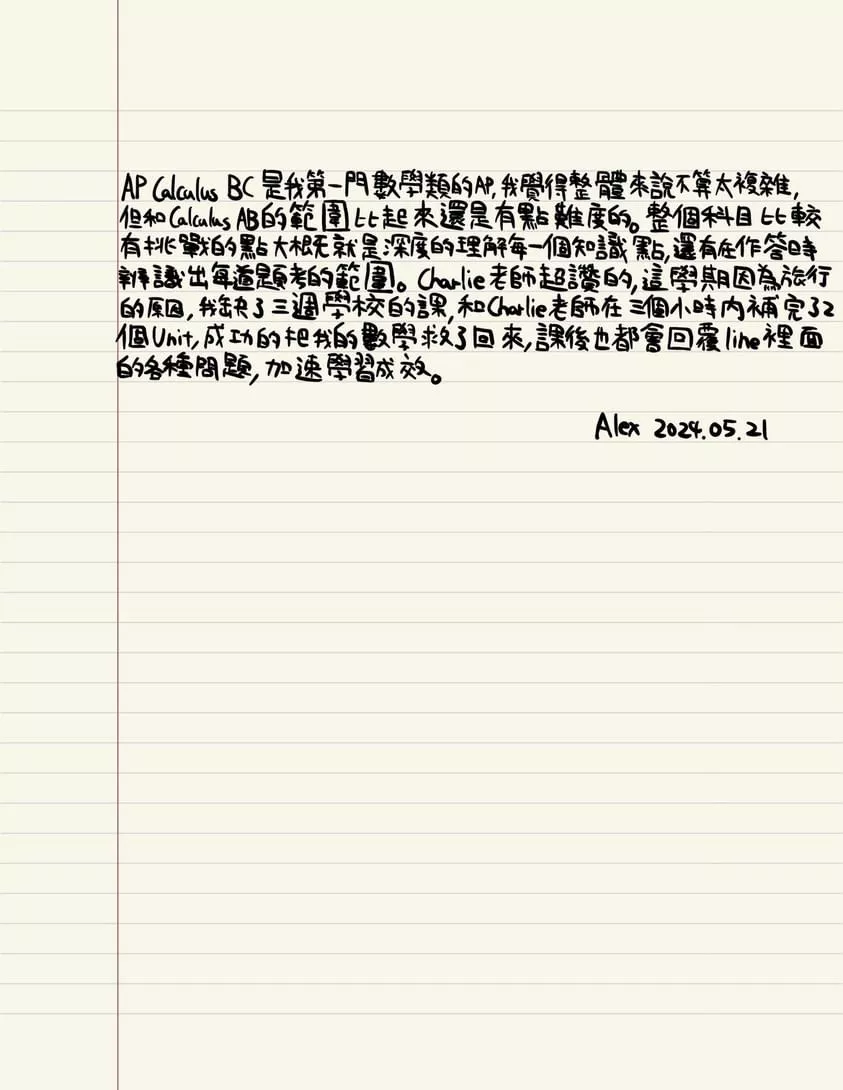 AP Calculus BC 是我第一門數學類的AP,我覺得整體來說不算太複雜,
但和Calculus AB的範圍比起來還是有點難度的。整個科目比較
有挑戰的點大概就是深度的理解每一個知識點,還有在作答時
辨識出每道題考的範圍。Charlie老師超讚的,這學期因為旅行
的原因,我缺了三週學校的課,和Charlie老師在三個小時內補完了2
個Unit,成功的把我的數學救了回來,課後也都會回覆line裡面
的各種問題,加速學習成效。
Alex 2024.05.21